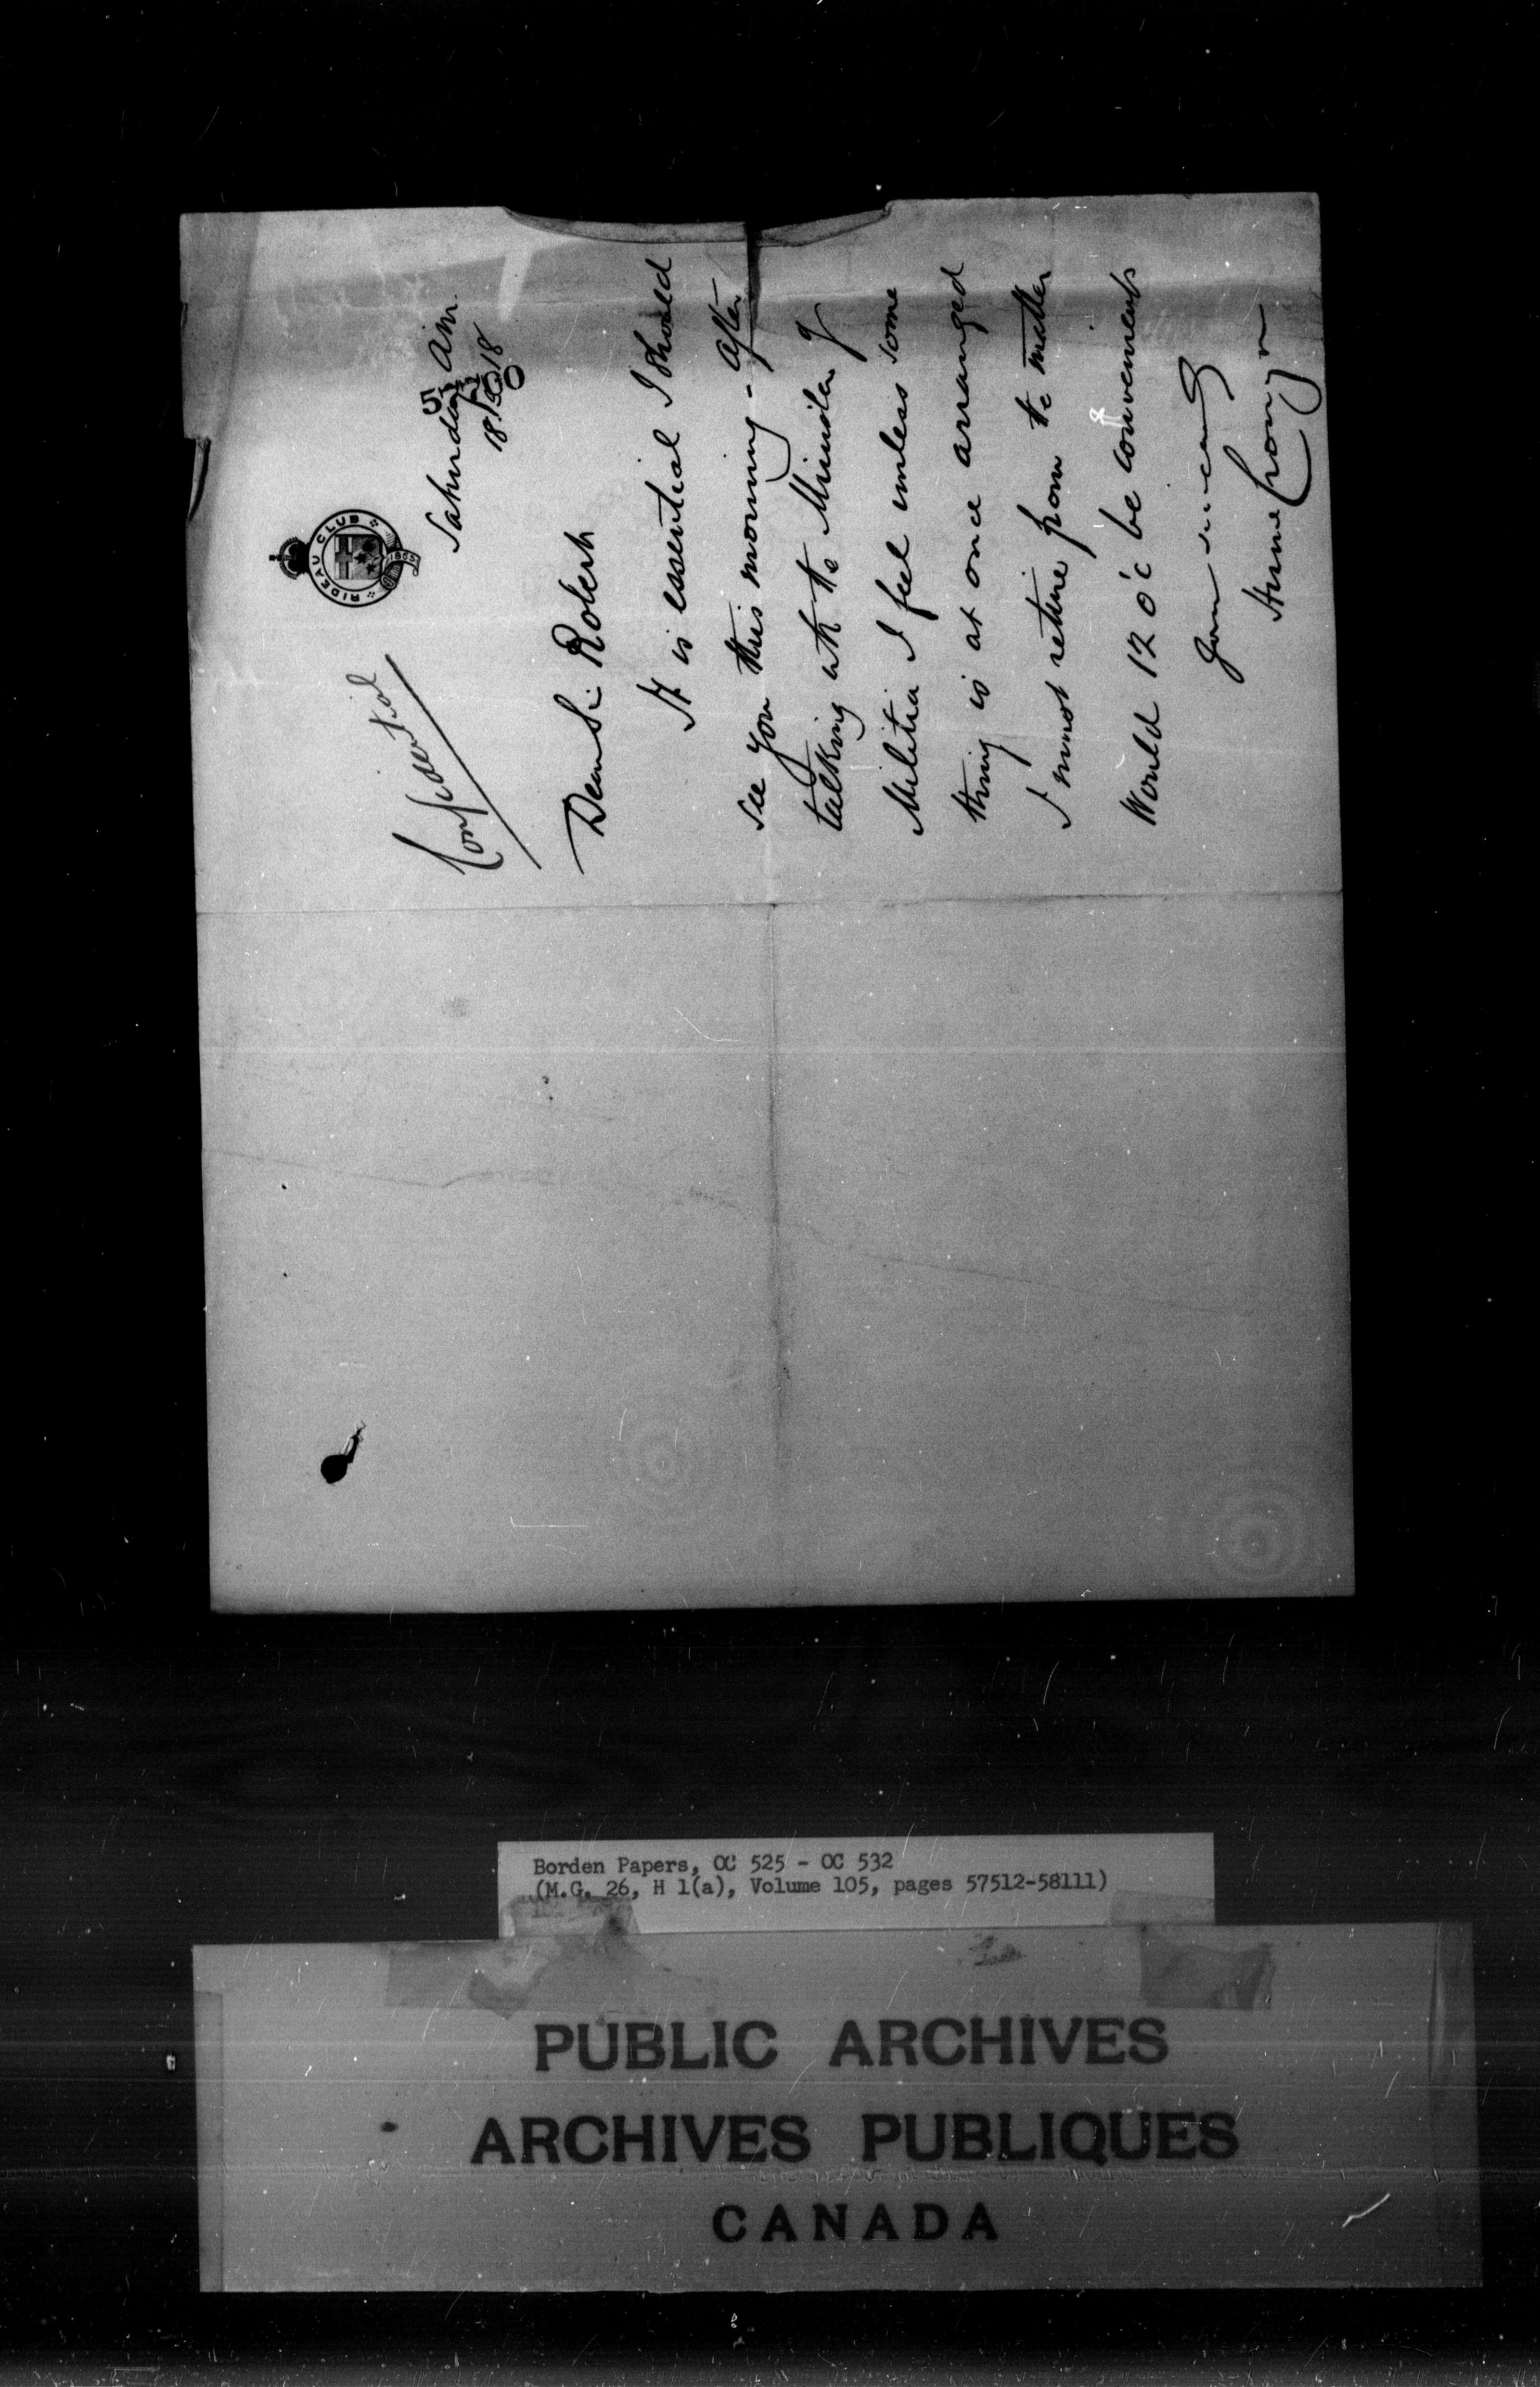 Confidential
RIDEAU CLUB
1865
Saturday a.m.
18.5.18
Dear Sir Robert
It is essential I should
see you this morning - After
talking wth the Minister of
Militia I feel unless some
thing is at once arranged
I must retire from the matter
Would 12 o'c be convenient
Yours sincerely
Hume Cronyn
Borden Papers, OC 525 - OC 532
(M.G. 26, H 1(a), Volume 105, pages 57512-58111)
PUBLIC ARCHIVES
ARCHIVES PUBLIQUES
CANADA